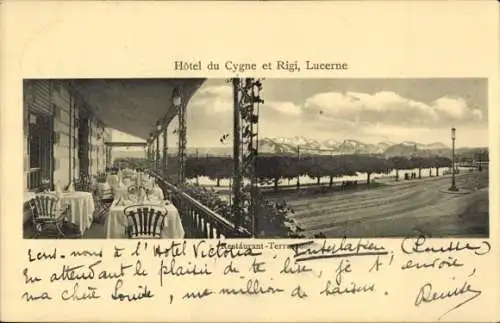 Hôtel du Cygne et Rigi, Lucerne
Restaurant-Terrasse
Ecris-nous à l'Hôtel Victoria, Interlaken (Suisse)
En attendant le plaisir de te lire, je t'envoie,
ma chère Louise, un million de baisers.
Denise